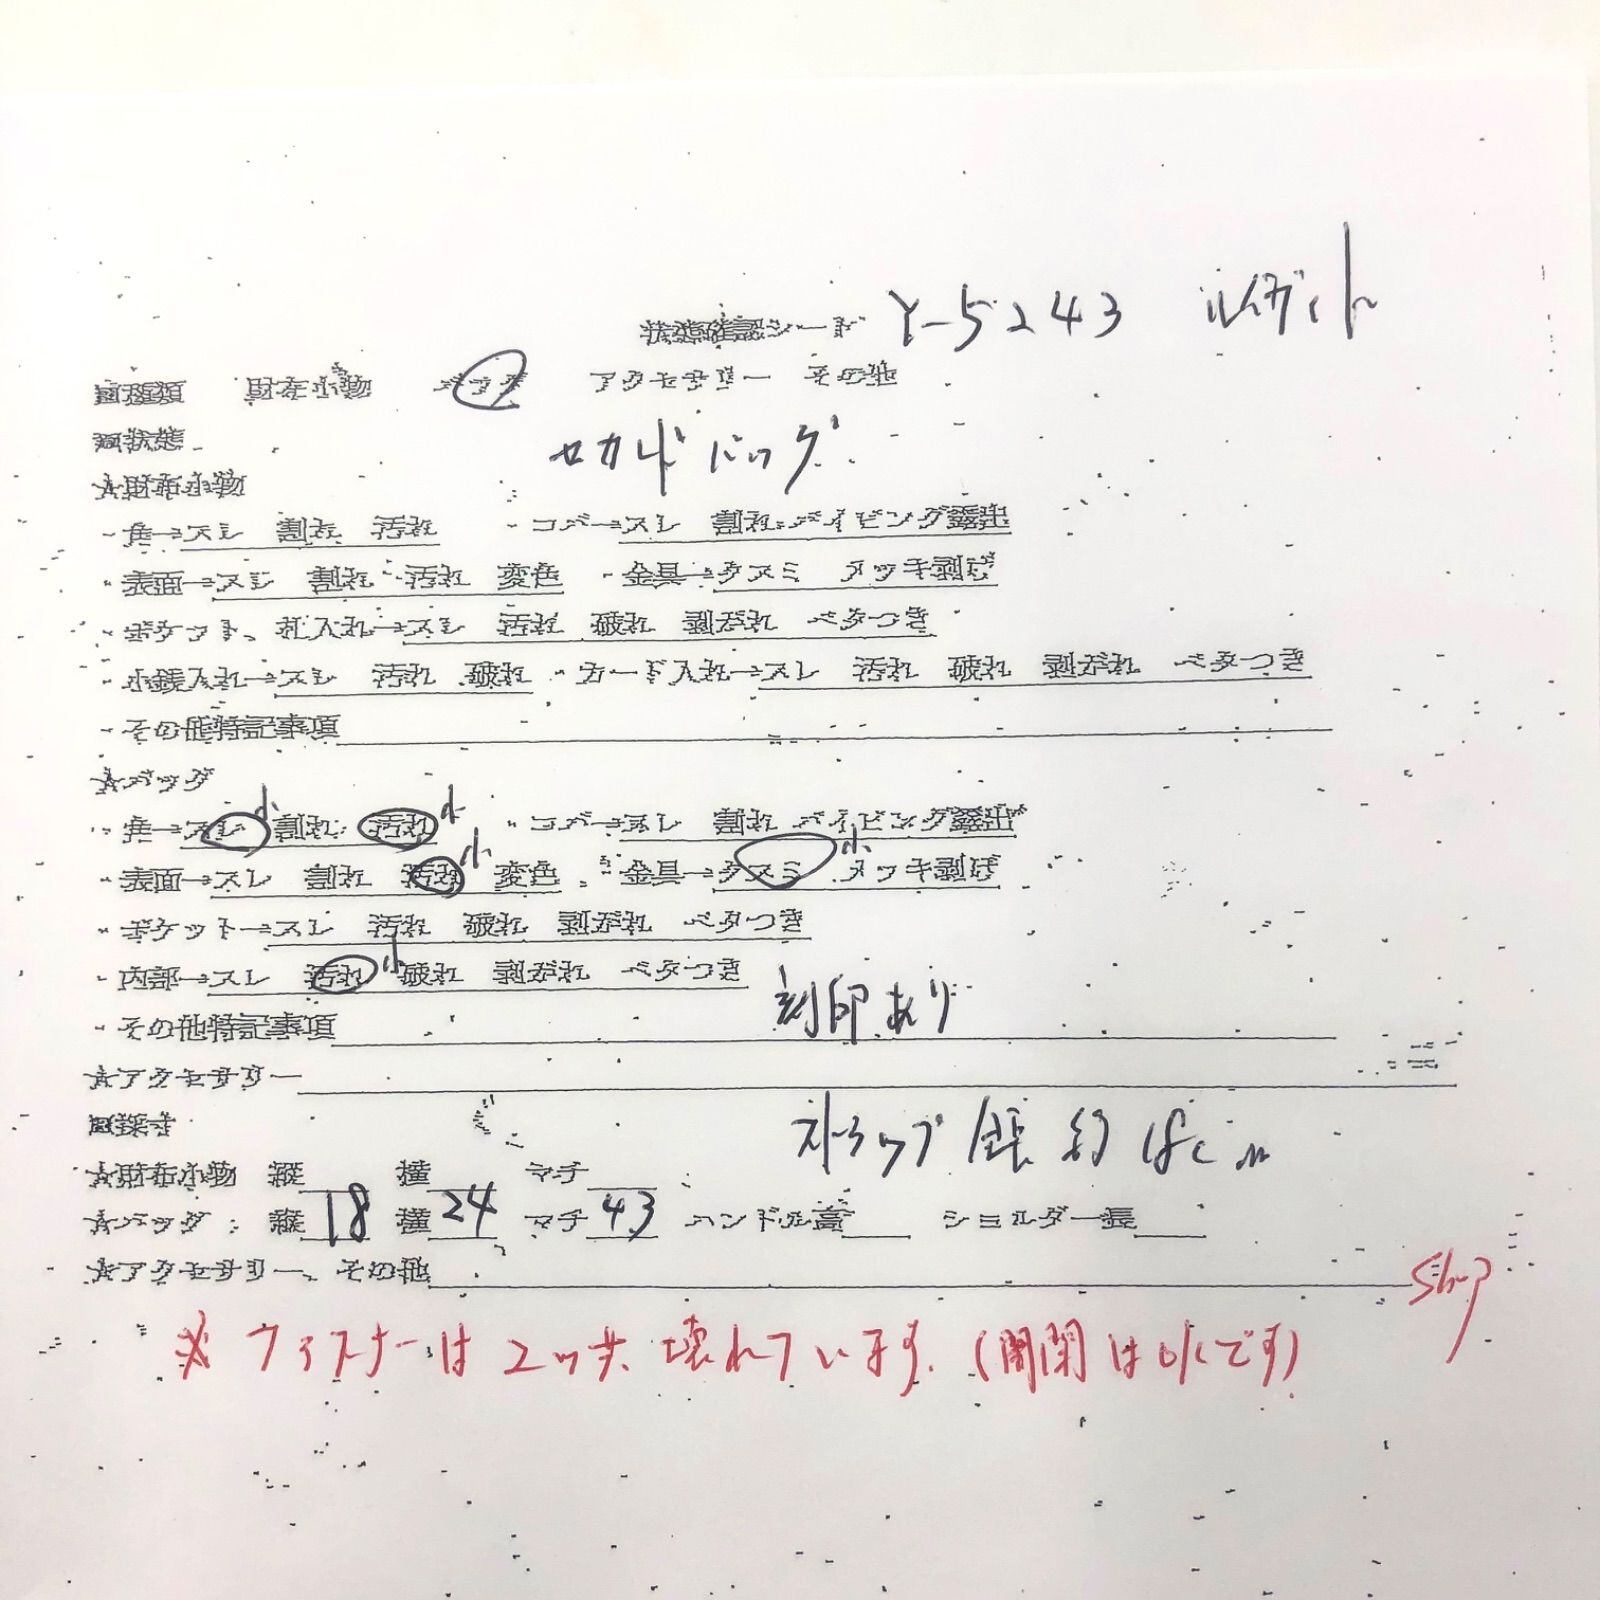 状態確認シート Y-5243 ルイヴィトン
□種類 財布小物 バッグ アクセサリー その他
□状態
セカンドバッグ
★財布小物
・角→スレ 割れ 汚れ ・コバ→スレ 割れ パイピング露出
・表面→スレ 割れ 汚れ 変色 ・金具→クスミ メッキ剥げ
・ポケット、札入れ→スレ 汚れ 破れ 剥がれ ベタつき
・小銭入れ→スレ 汚れ 破れ ・カード入れ→スレ 汚れ 破れ 剥がれ ベタつき
・その他特記事項
★バッグ
・角→スレ 小 割れ 汚れ 小 ・コバ→スレ 割れ パイピング露出
・表面→スレ 割れ 汚れ 小 変色 ・金具→クスミ 小 メッキ剥げ
・ポケット→スレ 汚れ 破れ 剥がれ ベタつき
・内部→スレ 汚れ 小 破れ 剥がれ ベタつき
・その他特記事項 刻印あり
★アクセサリー
□採寸
ストラップ 全長 約 cm
★財布小物 縦 横 マチ
★バッグ: 縦 18 横 24 マチ 43 ハンドル高 ショルダー長
★アクセサリー、その他
※ファスナーは2ツ共 壊れています。(開閉はokです)